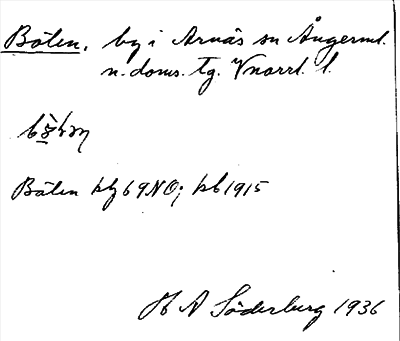 Bölen, by i Arnäs sn Ångerml.
n. doms. tg. Vnorrl. l.
Bölen kg 69NO; kb 1915
H A Söderburg 1936